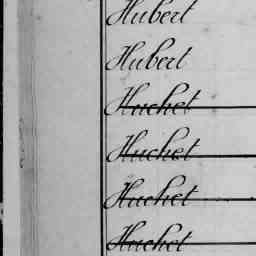 Hubert
Hubert
Huchet
Huchet
Huchet
Huchet